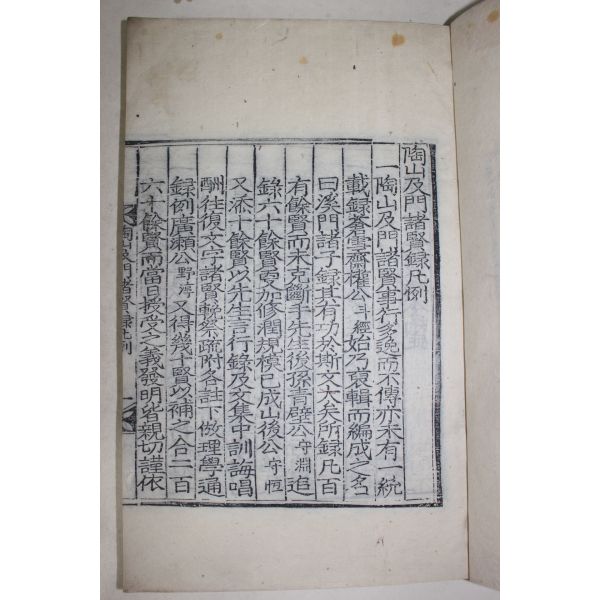 陶山及門諸賢録凡例
一陶山及門諸賢事行多逸而不傳亦未有一統
載録蒼雪齋權公斗經始乃裒輯而編成之名
曰溪門諸子録其有功於斯文大矣所録凡百
有餘賢而未克斷手先生後孫靑壁公守淵追
錄六十餘賢更加修潤規模已成山後公守恒
又添十餘賢以先生言行錄及文集中訓誨唱
酬往復文字諸賢輓祭疏附各註下做理學通
録例廣瀬公野淳又得幾十賢以補之合二百
六十餘賢而當日授受之義發明皆親切謹依
陶山及門諸賢録凡例